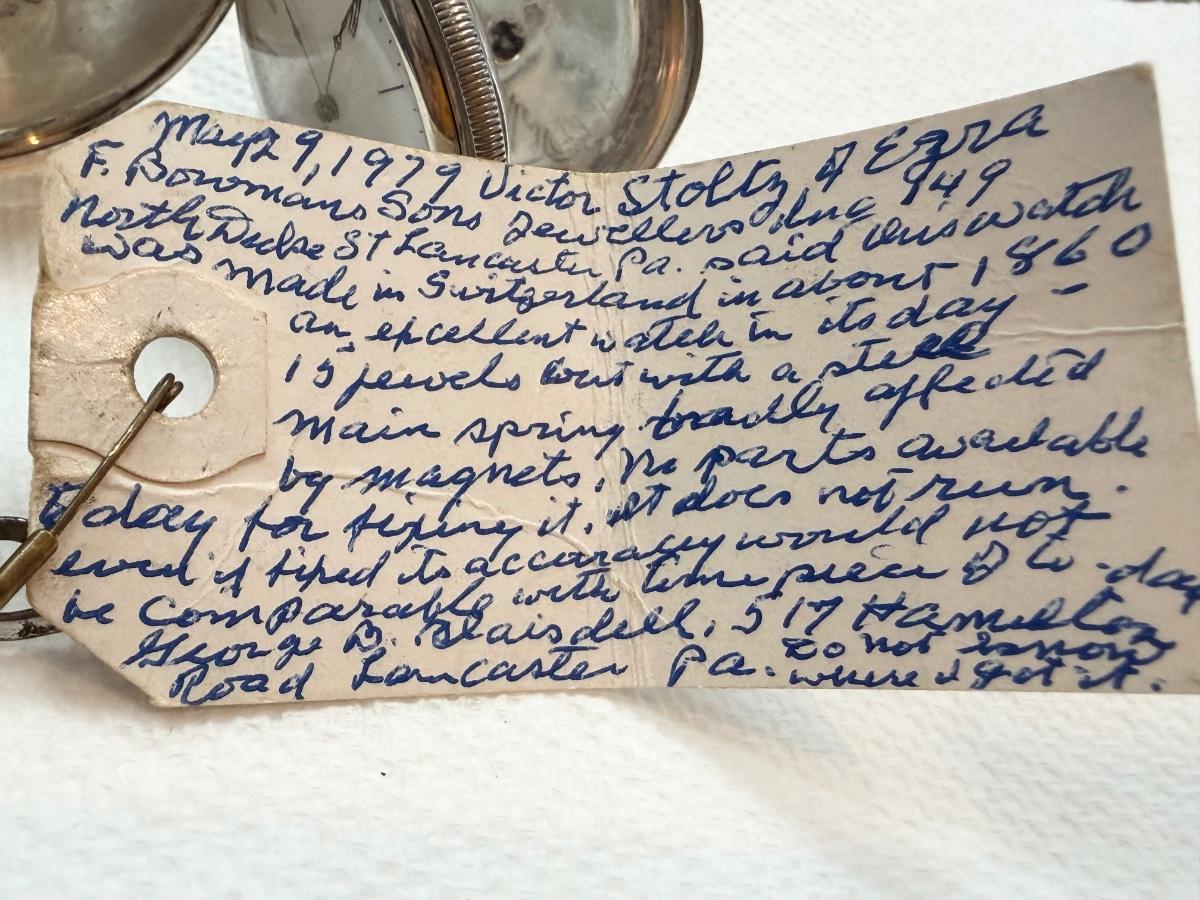 May 29, 1979 Victor Stoltz, of Ezra
F. Bowmans Sons Jewellers Inc 949
North Duke St Lancaster Pa. said this watch
was made in Switzerland in about 1860
an excellent watch in its day -
15 jewels but with a steel
main spring badly affected
by magnets. No parts available
today for fixing it. It does not run.
even if fixed its accuracy would not
be comparable with time piece of to-day
George B. Blaisdell, 517 Hamilton
Road Lancaster Pa. Do not know
where I got it.